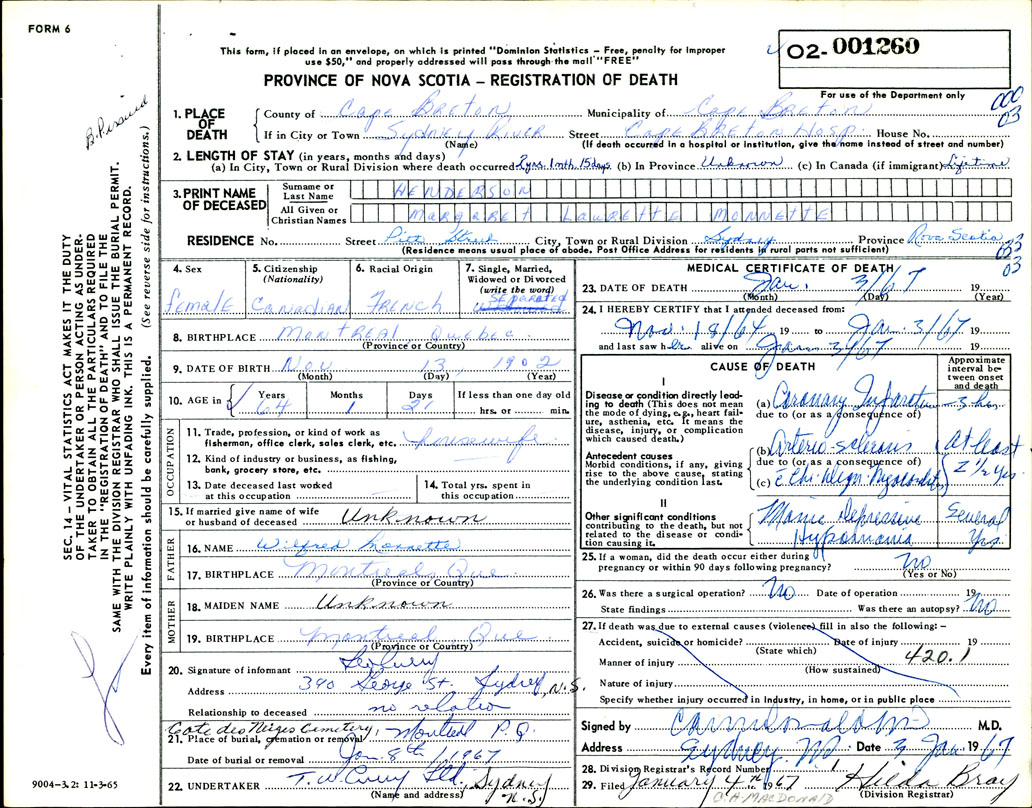 FORM 6
This form, if placed in an envelope, on which is printed "Dominion Statistics – Free, penalty for improper
use $50," and properly addressed will pass through the mail "FREE"
PROVINCE OF NOVA SCOTIA – REGISTRATION OF DEATH
02- 001260
For use of the Department only
000
03
1. PLACE OF DEATH
County of Cape Breton Municipality of Cape Breton
If in City or Town Sydney River Street Cape Breton Hosp. House No.
(Name) (If death occurred in a hospital or institution, give the name instead of street and number)
2. LENGTH OF STAY (in years, months and days)
(a) In City, Town or Rural Division where death occurred 2yrs. 1mth. 15days. (b) In Province Unknown (c) In Canada (if immigrant) Lifetime
3. PRINT NAME OF DECEASED
Surname or Last Name HENDERSON
All Given or Christian Names MARGARET LAURETTE MONNETTE
RESIDENCE No. Street Pitt Street City, Town or Rural Division Sydney Province Nova Scotia
(Residence means usual place of abode. Post Office Address for residents in rural parts not sufficient)
03
03
03
4. Sex
Female
5. Citizenship
(Nationality)
Canadian
6. Racial Origin
French
7. Single, Married,
Widowed or Divorced
(write the word)
SEPARATED
8. BIRTHPLACE Montreal Quebec
(Province or Country)
9. DATE OF BIRTH Nov 13 1902
(Month) (Day) (Year)
10. AGE in
Years Months Days If less than one day old
64 1 21 hrs. or min.
OCCUPATION
11. Trade, profession, or kind of work as
fisherman, office clerk, sales clerk, etc. housewife
12. Kind of industry or business, as fishing,
bank, grocery store, etc.
13. Date deceased last worked
at this occupation
14. Total yrs. spent in
this occupation
15. If married give name of wife
or husband of deceased Unknown
FATHER
16. NAME Wilfred
17. BIRTHPLACE Montreal, Que
(Province or Country)
MOTHER
18. MAIDEN NAME Unknown
19. BIRTHPLACE Montreal, Que
(Province or Country)
20. Signature of informant
Address 390 George St. Sydney, N.S.
Relationship to deceased no relation
Cote des Neiges Cemetery, Montreal P.Q.
21. Place of burial, cremation or removal
Date of burial or removal Jan. 8th 1967
22. UNDERTAKER T.W. Curry Ltd., Sydney
(Name and address) N.S.
MEDICAL CERTIFICATE OF DEATH
23. DATE OF DEATH Jan. 3/67 19
(Month) (Day) (Year)
24. I HEREBY CERTIFY that I attended deceased from:
Nov. 18/64 19 to Jan. 3/67 19
and last saw her alive on Jan 3/67 19
CAUSE OF DEATH
Approximate interval between onset and death
I
Disease or condition directly leading to death (This does not mean the mode of dying, e.g., heart failure, asthenia, etc. It means the disease, injury, or complication which caused death.)
(a) Coronary Infarction 3 hrs
due to (or as a consequence of)
Antecedent causes
Morbid conditions, if any, giving rise to the above cause, stating the underlying condition last.
(b) Arterio-sclerosis At least
due to (or as a consequence of) 2 1/2 yrs
(c) c̄ Chr. Degen. Myocarditis
II
Other significant conditions
contributing to the death, but not related to the disease or condition causing it.
Manic Depressive Several
Hypomania Yrs.
25. If a woman, did the death occur either during
pregnancy or within 90 days following pregnancy? No
(Yes or No)
26. Was there a surgical operation? No Date of operation 19
State findings Was there an autopsy? No
27. If death was due to external causes (violence) fill in also the following: –
Accident, suicide or homicide? Date of injury 19
(State which)
420.1
Manner of injury
(How sustained)
Nature of injury
Specify whether injury occurred in industry, in home, or in public place
Signed by M.D.
Address Sydney Date 3 Jan 1967
28. Division Registrar's Record Number 1
29. Filed January 4th 1967 Hilda Bray
(Division Registrar)
C.A. MACDONALD
SEC. 14 – VITAL STATISTICS ACT MAKES IT THE DUTY
OF THE UNDERTAKER OR PERSON ACTING AS UNDER-
TAKER TO OBTAIN ALL THE PARTICULARS REQUIRED
IN THE "REGISTRATION OF DEATH" AND TO FILE THE
SAME WITH THE DIVISION REGISTRAR WHO SHALL ISSUE THE BURIAL PERMIT.
WRITE PLAINLY WITH UNFADING INK. THIS IS A PERMANENT RECORD.
Every item of information should be carefully supplied. (See reverse side for instructions.)
9004-3.2: 11-3-65